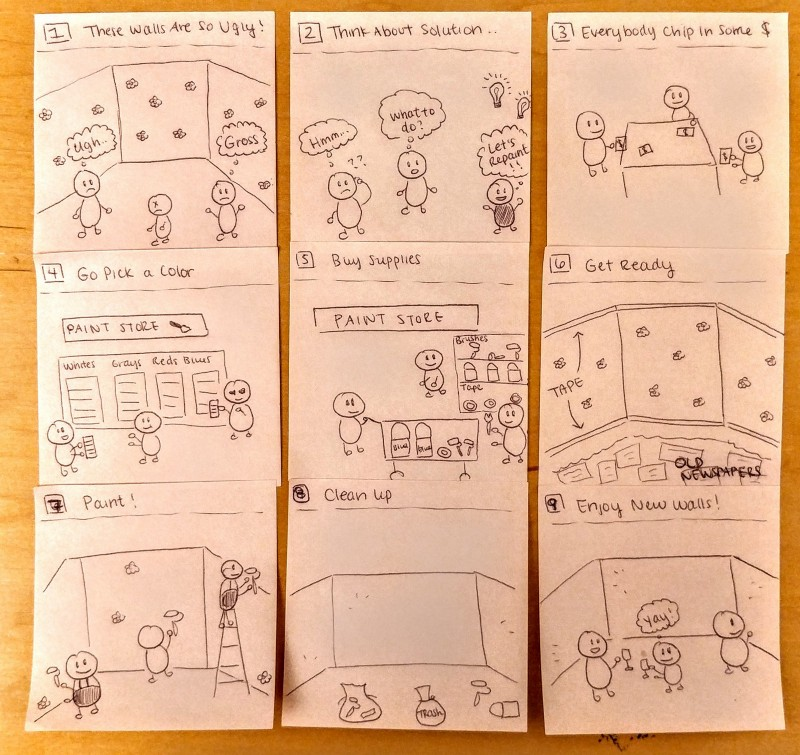 1 These Walls Are So Ugly!
Ugh..
Gross
2 Think About Solution..
Hmm...
??
What to
do?
Let's
Repaint
!!
3 Everybody Chip In Some $
$
$
$
$
4 Go Pick a Color
PAINT STORE
Whites Grays Reds Blues
5 Buy Supplies
PAINT STORE
Brushes
Tape
Blue
Blue
6 Get Ready
TAPE
OLD
NEWSPAPERS
7 Paint!
8 Clean Up
TRASH
9 Enjoy New Walls!
Yay!